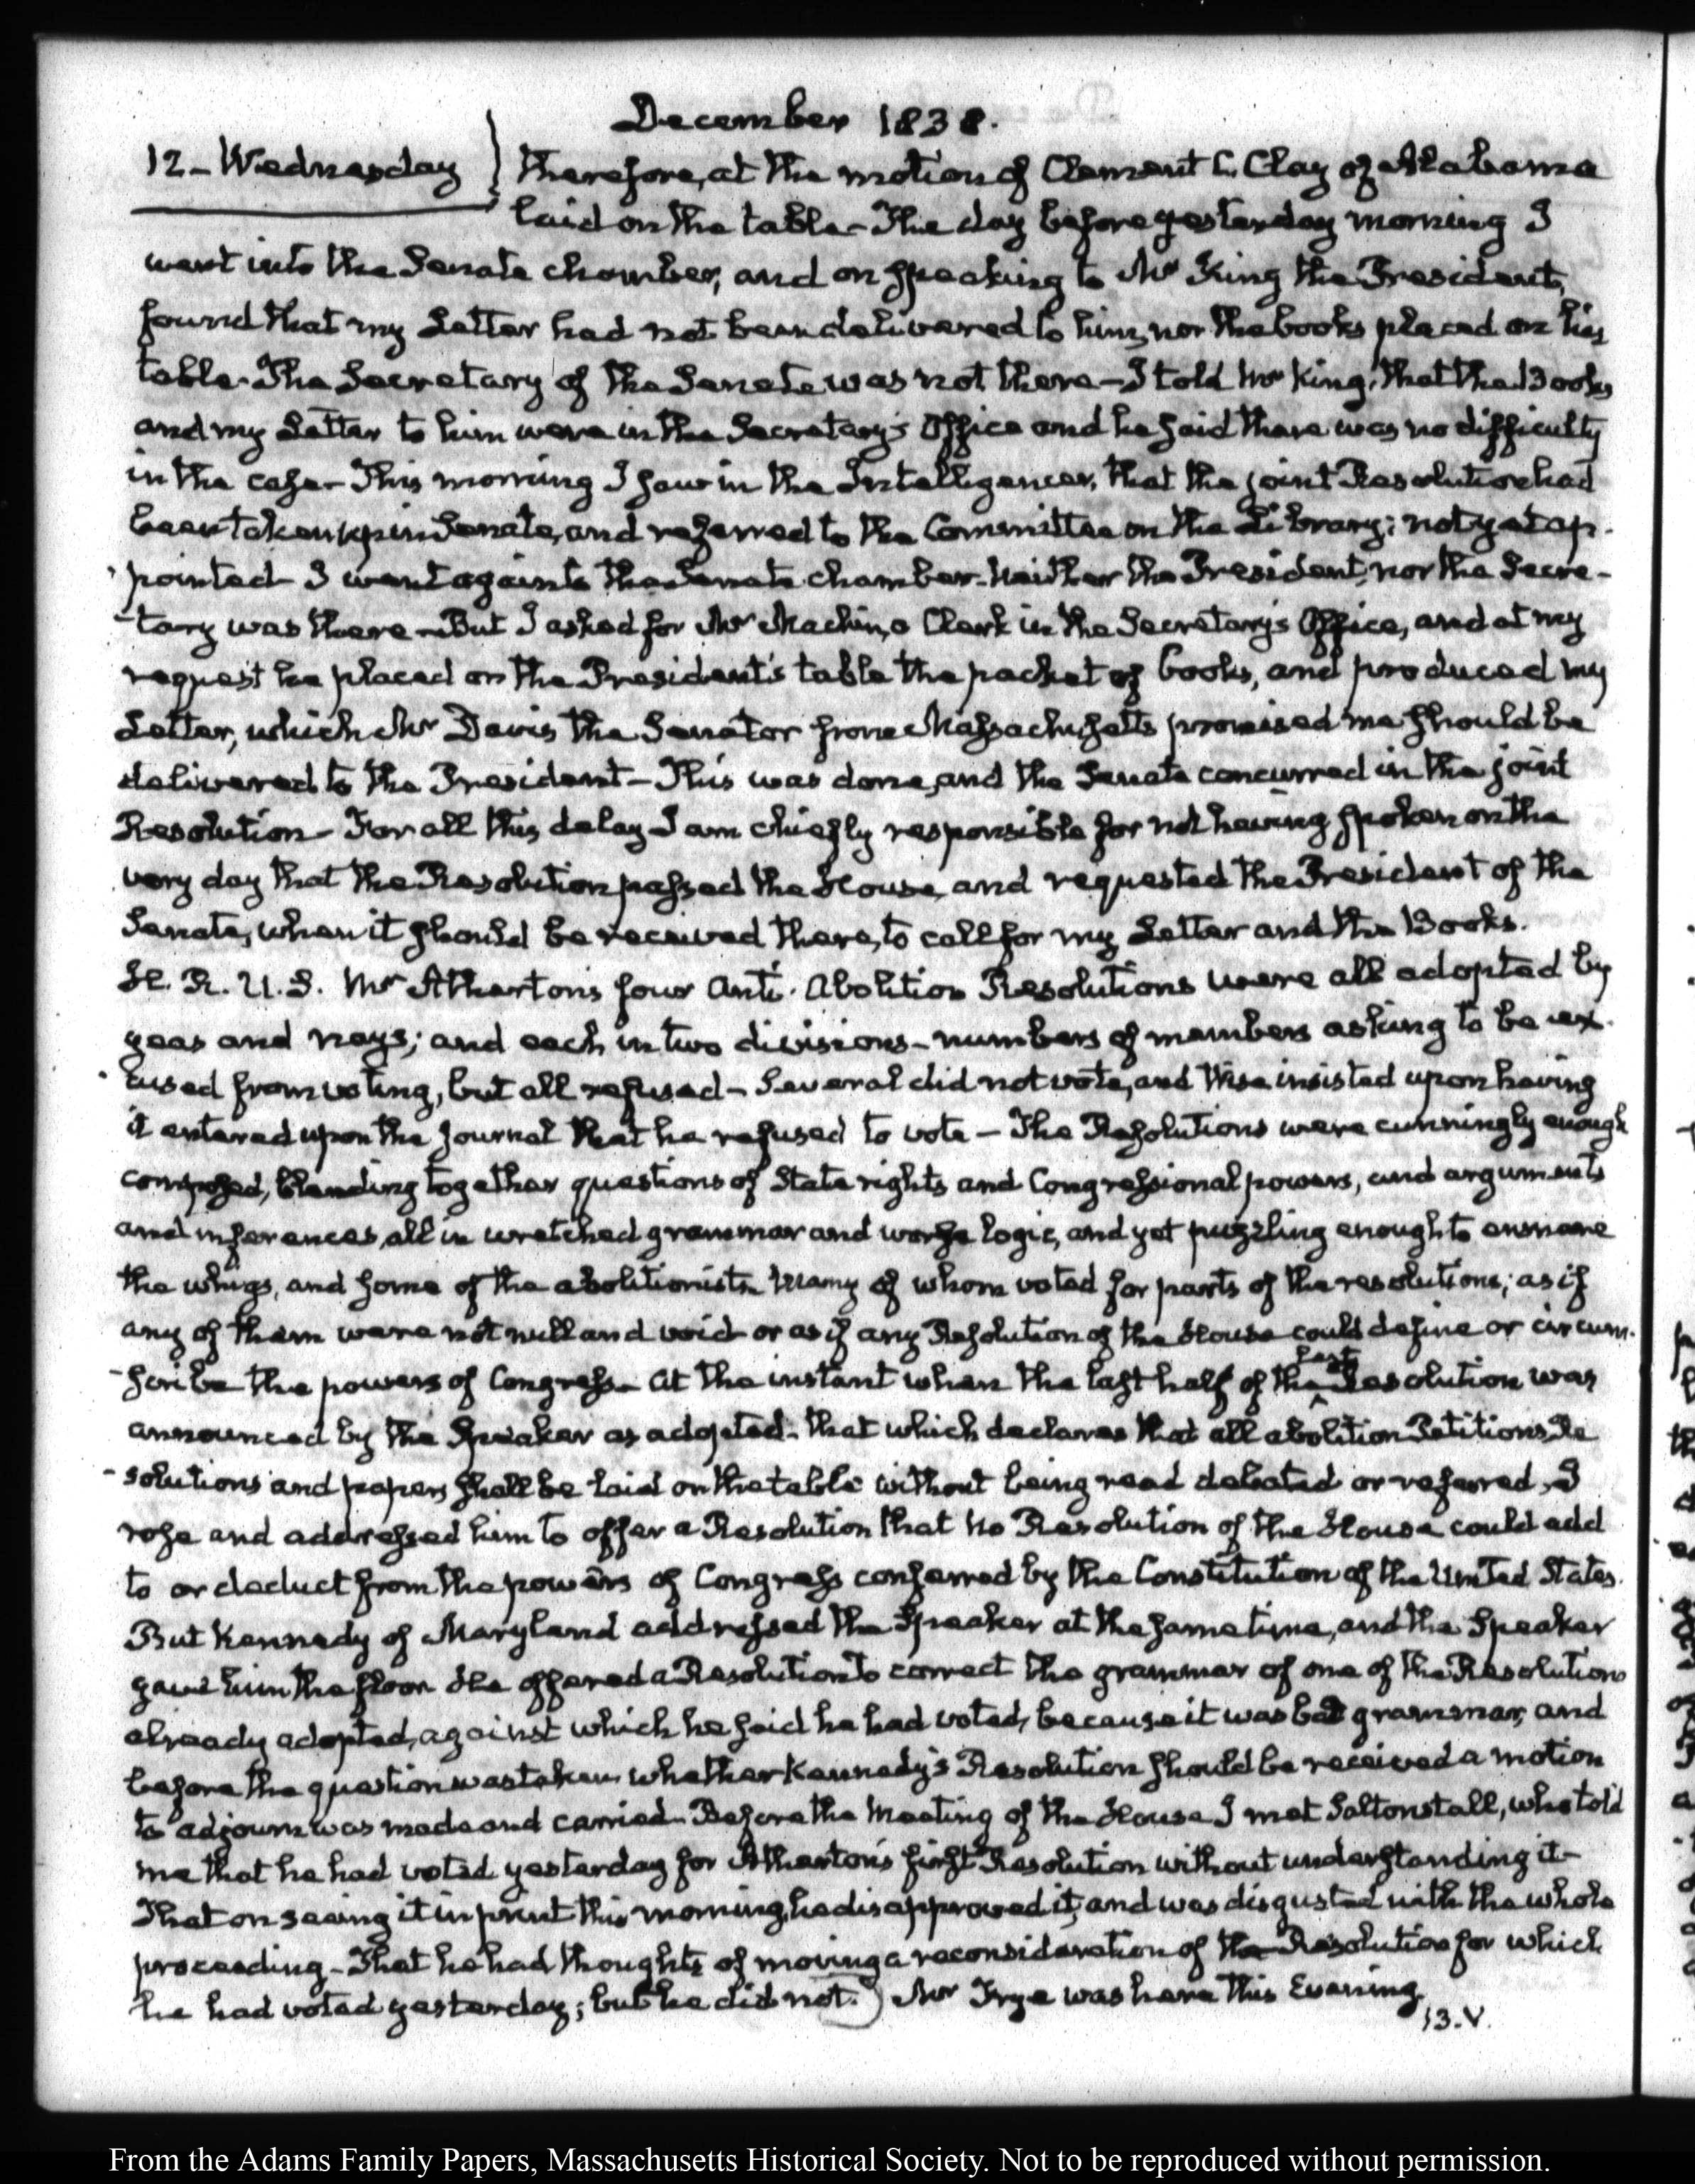 December 1838.
12 – Wednesday } therefore, at the motion of Clement C. Clay of Alabama
laid on the table – The day before yesterday morning I
went into the Senate chamber, and on speaking to Mr King the President,
found that my Letter had not been delivered to him, nor the books placed on his
table. The Secretary of the Senate was not there – I told Mr King, that the Books
and my Letter to him were in the Secretary's Office and he said there was no difficulty
in the case – This morning I saw in the Intelligencer, that the joint Resolution had
been taken up in Senate, and referred to the Committee on the Library; not yet ap-
pointed – I went again to the Senate chamber – Neither the President, nor the Secre-
-tary was there – But I asked for Mr Machin, a Clerk in the Secretary's Office, and at my
request he placed on the President's table the packet of books, and produced my
Letter, which Mr Davis the Senator from Massachusetts promised me should be
delivered to the President – This was done, and the Senate concurred in the joint
Resolution – For all this delay I am chiefly responsible for not having spoken on the
very day that the Resolution passed the House, and requested the President of the
Senate, when it should be received there, to call for my Letter and the Books.
H. R. U. S. Mr Atherton's four Anti-Abolition Resolutions were all adopted by
yeas and nays; and each in two divisions – numbers of members asking to be ex-
cused from voting, but all refused – Several did not vote, and Wise insisted upon having
it entered upon the Journal that he refused to vote – The Resolutions were cunningly enough
composed, blending together questions of State rights and Congressional powers, and arguments
and inferences, all in wretched grammar and worse logic, and yet puzzling enough to ensnare
the whigs, and some of the abolitionists – Many of whom voted for parts of the resolutions; as if
any of them were not null and void – or as if any Resolution of the House could define or circum-
-scribe the powers of Congress – At the instant when the last half of the last Resolution was
announced by the Speaker as adopted – that which declares that all abolition Petitions, Re
-solutions and papers shall be laid on the table without being read debated or referred, I
rose and addressed him to offer a Resolution that no Resolution of the House could add
to or deduct from the powers of Congress conferred by the Constitution of the United States.
But Kennedy of Maryland addressed the Speaker at the same time, and the Speaker
gave him the floor – He offered a Resolution to correct the grammar of one of the Resolutions
already adopted, against which he said he had voted, because it was bad grammar, and
before the question was taken whether Kennedy's Resolution should be received a motion
to adjourn was made and carried – Before the Meeting of the House I met Saltonstall, who told
me that he had voted yesterday for Atherton's first Resolution without understanding it –
That on seeing it in print this morning, he disapproved it, and was disgusted with the whole
proceeding – That he had thoughts of moving a reconsideration of the Resolution for which
he had voted yesterday; but he did not.) Mr Frye was here this Evening.
13. V.
From the Adams Family Papers, Massachusetts Historical Society. Not to be reproduced without permission.